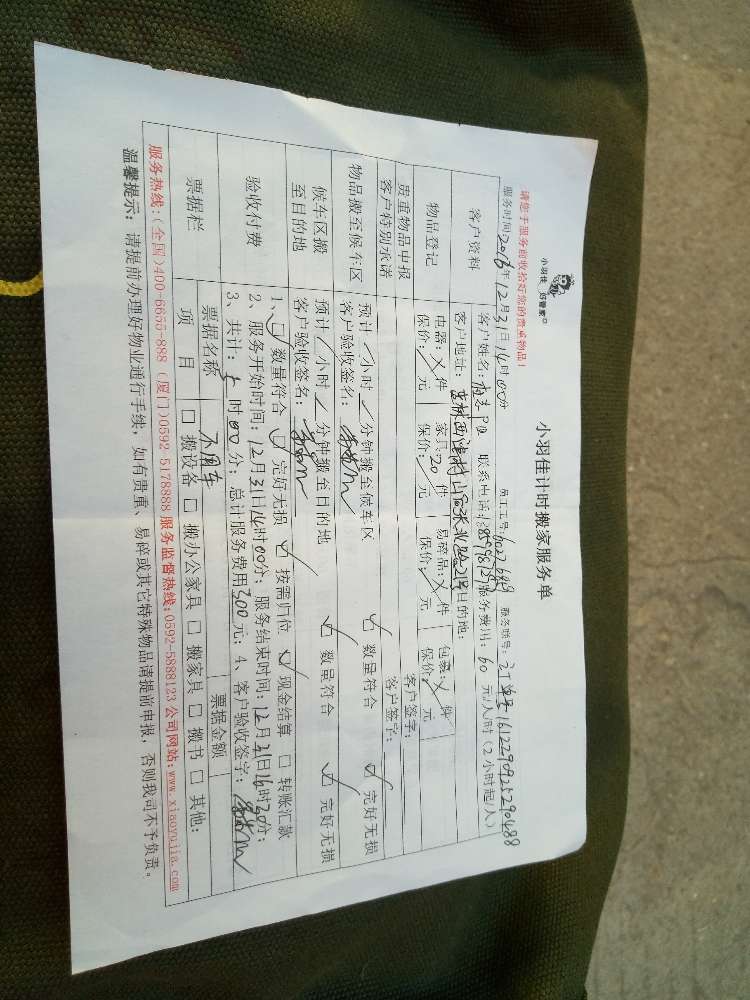 小羽佳 好管家
小羽佳计时搬家服务单
请您于服务前收拾好您的贵重物品！
服务时间：2016年12月31日14时00分 员工工号：60226889 服务账号：订单号1612290925290488
客户资料
客户姓名： 联系电话： 服务费用：60元/人/时（2小时起/人）
客户地址： 目的地：
物品登记
电器：╱件 家具：20件 易碎品：╱件 包裹：╱件
保价：╱元 保价：╱元 保价：╱元 保价：╱元
贵重物品申报 客户签字：
客户特别承诺 客户签字：
物品搬至候车区
预计╱小时╱分钟搬至候车区 ☑ 数量符合 ☑ 完好无损
客户验收签名：
候车区搬至目的地
预计╱小时╱分钟搬至目的地 ☑ 数量符合 ☑ 完好无损
客户验收签名：
验收付费
1、☑ 数量符合 ☑ 完好无损 ☑ 按需归位 ☑ 现金结算 □ 转账汇款
2、服务开始时间：12月31日14时00分；服务结束时间：12月31日16时30分；
3、共计：5时00分；总计服务费用300元；4、客户验收签字：
票据栏
票据名称 不用车 票据金额
项 目 □ 搬设备 □ 搬办公家具 □ 搬家具 □ 搬书 □ 其他：
服务热线：（全国）400-6655-888（厦门）0592-5178888 服务监督热线：0592-5888123 公司网站：www.xiaoyujia.com
温馨提示：请提前办理好物业通行手续，如有贵重、易碎或其它特殊物品请提前申报，否则我司不予负责。